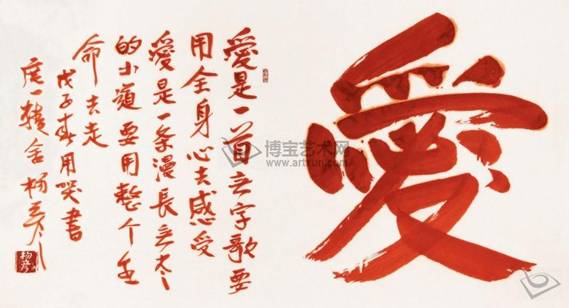 愛
愛是一首无字歌要
用全身心去感受
愛是一条漫長无
的小道要用整个生
命去走
戊子春用 書
一 舍
博宝艺术网
www.artrun.com